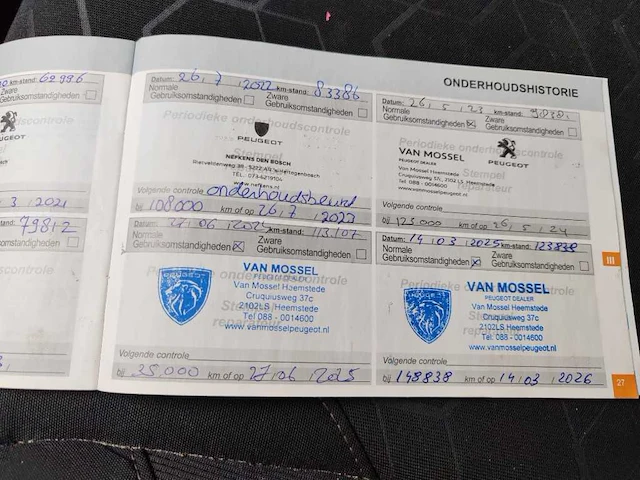 km-stand: 69996
Zware
Gebruiksomstandigheden
PEUGEOT
3 2021
stand: 79812
Zware
Gebruiksomstandigheden
ONDERHOUDSHISTORIE
Datum: 26, 7, 2022 km-stand: 83386
Normale
Gebruiksomstandigheden
Zware
Gebruiksomstandigheden
Periodieke onderhoudscontrole
Stempel
PEUGEOT
NEFKENS DEN BOSCH
TEL. 073-6219104
www.nefkens.nl
Volgende controle onderhoudsbeurt
bij 108000 km of op 26, 7, 2023
Datum: 26, 5, 23 km-stand:
Normale
Gebruiksomstandigheden
Zware
Gebruiksomstandigheden
Periodieke onderhoudscontrole
VAN MOSSEL
PEUGEOT DEALER
PEUGEOT
Van Mossel Heemstede
Cruquiusweg 37c, 2102 LS Heemstede
Tel 088 - 0014600
www.vanmosselpeugeot.nl
Stempel
reparateur
Volgende controle
bij 125.000 km of op 26, 5, 24
06 km-stand: 113.107
Normale
Gebruiksomstandigheden
Zware
Gebruiksomstandigheden
PEUGEOT
VAN MOSSEL
PEUGEOT DEALER
Van Mossel Heemstede
Cruquiusweg 37c
2102LS Heemstede
Tel 088 - 0014600
www.vanmosselpeugeot.nl
Volgende controle
bij 35.000 km of op 27, 06, 2025
Datum: 14, 03, 2025 km-stand: 123838
Normale
Gebruiksomstandigheden
Zware
Gebruiksomstandigheden
Periodieke onderhoudscontrole
PEUGEOT
VAN MOSSEL
PEUGEOT DEALER
Van Mossel Heemstede
Cruquiusweg 37c
2102LS Heemstede
Tel 088 - 0014600
www.vanmosselpeugeot.nl
Volgende controle
bij 148838 km of op 14, 03, 2026
III
27